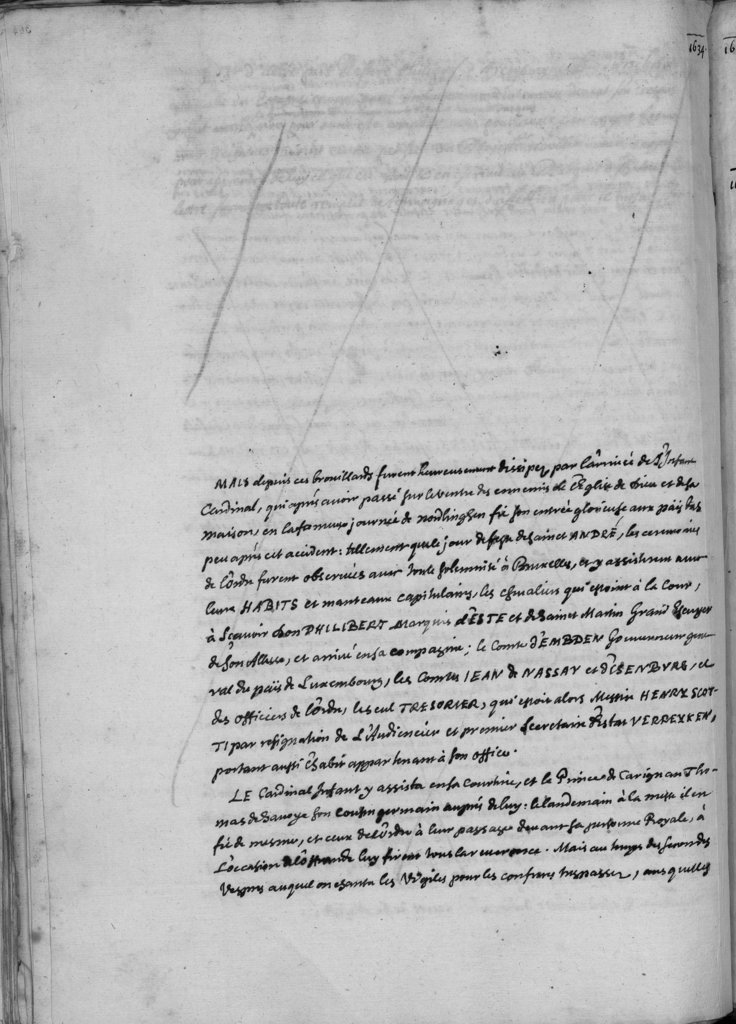 1634.
MAIS depuis ces brouillards furent heureusement dissipez par l'arrivée de l'Infant
Cardinal, qui aprés avoir passé sur le ventre des ennemis de l'Eglise de Dieu et de sa
maison, en la fameuse journée de nordlinghen fit son entrée glorieuse aux païs bas
peu aprés cet accident: tellement que le jour de feste de sainct ANDRÉ, les ceremonies
de l'ordre furent observées avec toute solemnité à Bruxelles, et y assisterent avec
leurs HABITS et manteaux capitulaires, les chevaliers qui estoint à la Cour,
à sçavoir Don PHILIBERT Marquis d'ESTE et de Sainct Martin Grand Escuyer
de son Altesse, et arrivé en sa compagnie; le Comte d'EMBDEN Gouverneur gene-
ral du païs de Luxembourg, les Comtes IEAN de NASSAV et d'ISENBVRG, et
des officiers de l'ordre, le seul TRESORIER, qui estoit alors Messire HENRY SCOT-
TI par resignation de l'Audiencier et premier Secretaire d'Estat VERREYKEN,
portant aussi l'habit appartenant à son office.
LE Cardinal Infant y assista en sa Courtine, et le Prince de Carignan Tho-
mas de Savoye son cousin germain auprés de luy: le landemain à la messe il en
fit de mesme, et ceux de l'ordre à leur passage devant sa personne Royale, à
l'occasion de l'offrande luy firent tous la reverence. Mais au temps des secondes
Vespres auquel on chanta les Vigiles pour les confreres trespassez, ausquelles